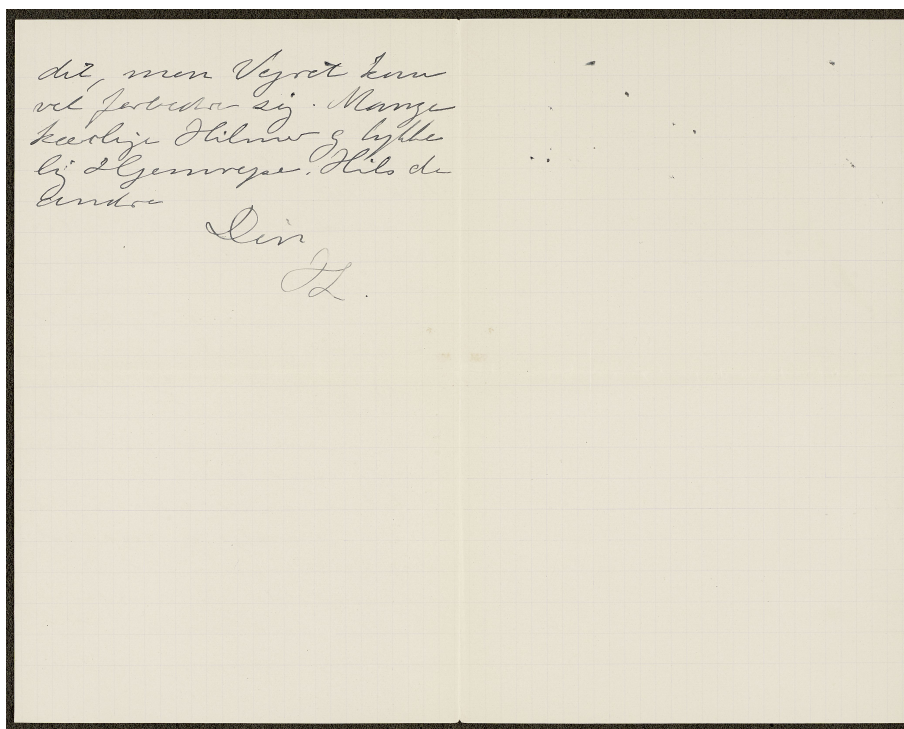 det, men Vejret kan
vel forbedre sig. Mange
kærlige Hilsner og lykke
lig Hjemrejse. Hils de
andre
Din
JL.